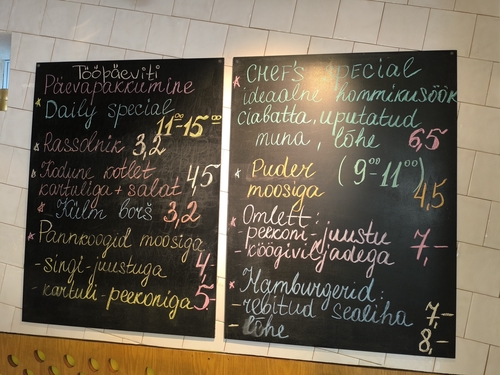 Tööpäeviti
Päevapakkumine
Daily special
11-15⁰⁰
Rassolnik 3,2
Kodune kotlet 4,5
kartuliga + salat
Külm borš 3,2
Pannkoogid moosiga
- singi-juustuga 4,-
- kartuli-peekoniga 5.-
CHEF's special
ideaalne hommikusöök
ciabatta, uputatud
muna, lõhe 6,5
Puder (9⁰⁰-11⁰⁰)
moosiga 4,5
Omlett:
- peekoni-juustu 7,-
- köögiviljadega
Hamburgerid:
- rebitud sealiha 7,-
- lõhe 8,-